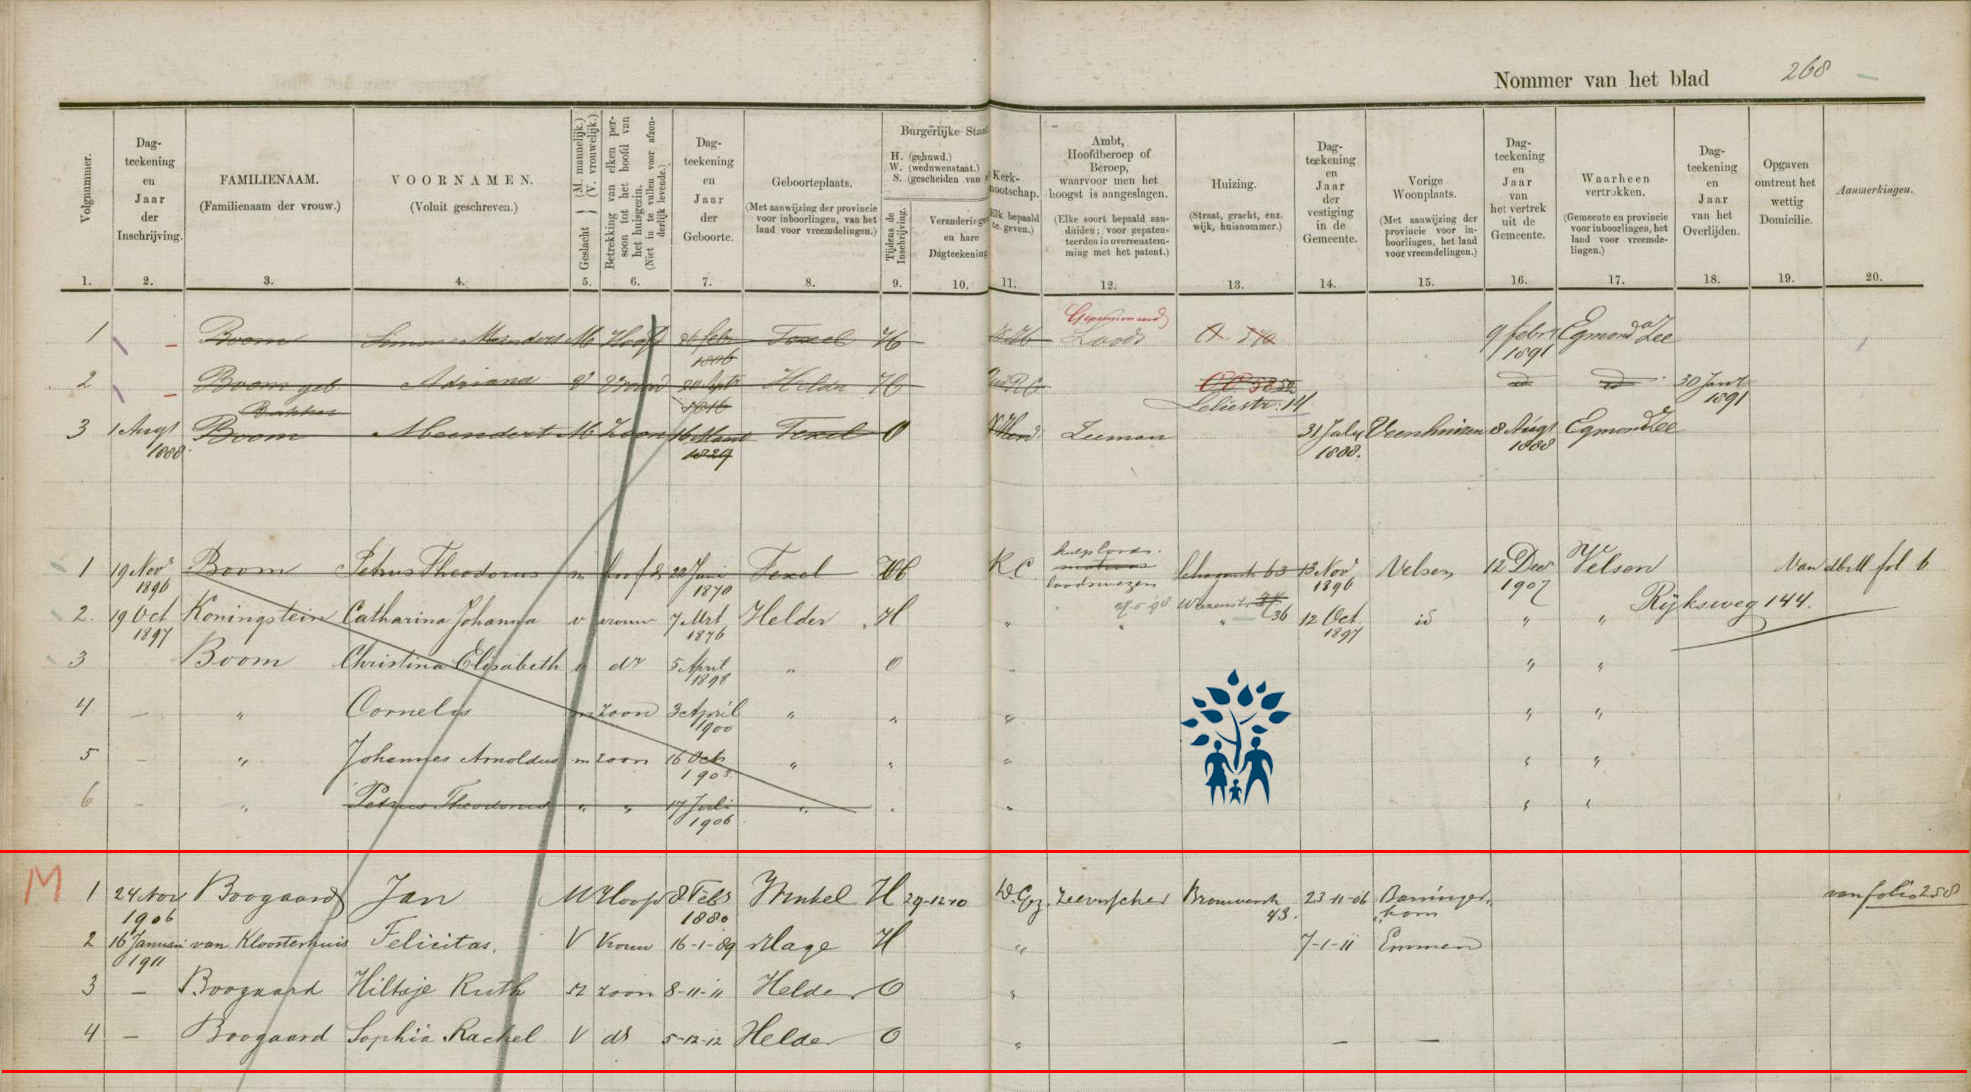 Nommer van het blad 268
Volgnummer.
Dag-
teekening
en
Jaar
der
Inschrijving.
FAMILIENAAM.
(Familienaam der vrouw.)
VOORNAMEN.
(Voluit geschreven.)
Geslacht (M. mannelijk.) (V. vrouwelijk.)
Betrekking van elken per-
soon tot het hoofd van
het huisgezin.
(Niet in te vullen voor afzon-
derlijk levende.)
Dag-
teekening
en
Jaar
der
Geboorte.
Geboorteplaats.
(Met aanwijzing der provincie
voor inboorlingen, van het
land voor vreemdelingen.)
Burgerlijke Staat
H. (gehuwd.)
W. (weduwenstaat.)
S. (gescheiden van
Tijdens de
Inschrijving.
en hare
Dagteekening
Kerk-
nootschap.
Ambt,
Hoofdberoep of
Beroep,
waarvoor men het
hoogst is aangeslagen.
(Elke soort bepaald aan-
duiden; voor gepaten-
teerden in overeenstem-
ming met het patent.)
Huizing.
(Straat, gracht, enz.
wijk, huisnommer.)
Dag-
teekening
en
Jaar
der
vestiging
in de
Gemeente.
Vorige
Woonplaats.
(Met aanwijzing der
provincie voor in-
boorlingen, het land
voor vreemdelingen.)
Dag-
teekening
en
Jaar
van
het vertrek
uit de
Gemeente.
Waarheen
vertrokken.
(Gemeente en provincie
voor inboorlingen, het
land voor vreemde-
lingen.)
Dag-
teekening
en
Jaar
van het
Overlijden.
Opgaven
omtrent het
wettig
Domicilie.
Aanmerkingen.
1. 2. 3. 4. 5. 6. 7. 8. 9. 10. 11. 12. 13. 14. 15. 16. 17. 18. 19. 20.
Gepensioneerd
1 Boom Simon Meinderts M Hoofd 26 febr 1816 Texel H Loods 9 febr 1891 Egmond a Zee
2 Boom geb Bakker Adriana V Vrouw 20 Sept 1816 Helder H id id 30 Jan 1891
Leliestr. 14
3 1 Augt 1888 Boom Meindert M Zoon Texel O Zeeman 31 July 1888. Veenhuizen 8 Augt 1888 Egmond a Zee
1 19 Nov 1896 Boom Petrus Theodorus m hoofd 22 Juni 1870 Texel H R.C. hulploods. matroos loodswezen 63 13 Nov 1896 Velsen 12 Dec 1907 Velsen Van dbll fol 6
2. 19 Oct 1897 Koningstein Catharina Johanna v vrouw 7 Mrt 1876 Helder H " " 36 12 Oct. 1897 id " " Rijksweg 144.
3 Boom Christina Elisabeth v dr 5 April 1898 " O " "
4 — " Cornelis m zoon 3 April 1900 " " " " "
5 — " Johannes Arnoldus m zoon 16 Oct " " " " "
6 — " Petrus Theodorus " " 17 Juli 1906 " " " " "
M 1 24 Nov 1906 Boogaard Jan M Hoofd 8 Febr 1880 H 29-12-10 D.Gez. Zeevisscher 43. 23-11-06 van folio 258
2 16 Januari 1911 van Kloosterhuis Felicitas. V Vrouw 16-1-89 H " 7-1-11 Emmen
3 — Boogaard Hiltsje Ruth M zoon 8-11-11 Helder O "
4 — Boogaard Sophia Rachel V dr 5-12-12 Helder O " — —